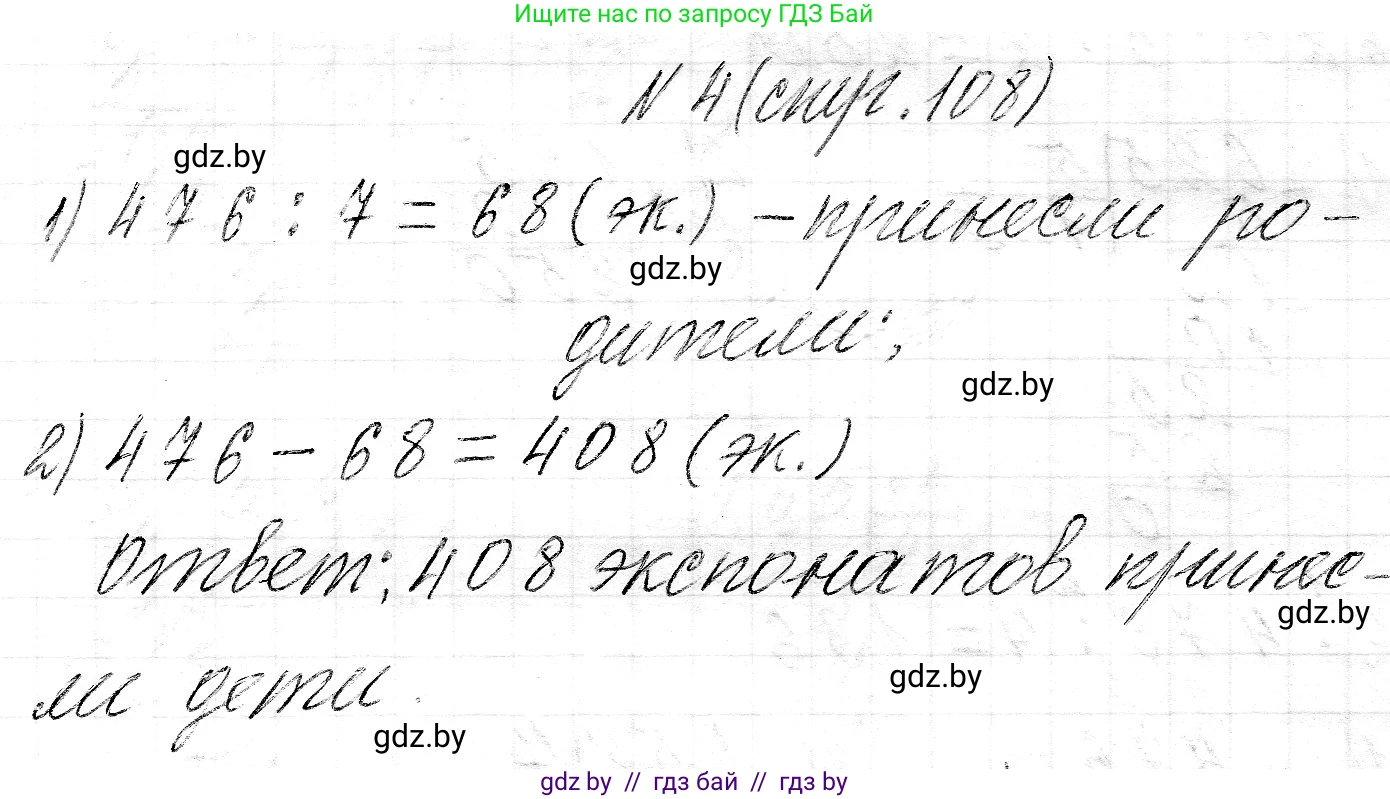 Ищите нас по запросу ГДЗ Бай
N 4 (слуг. 108)
gdz.by
1) 476 : 7 = 68 (эк.) – принесли ро-
gdz.by
дители;
gdz.by
2) 476 – 68 = 408 (эк.)
Ответ: 408 экспонатов принес-
gdz.by
ли дети.
gdz.by
gdz.by
gdz by // гдз бай // гдз by